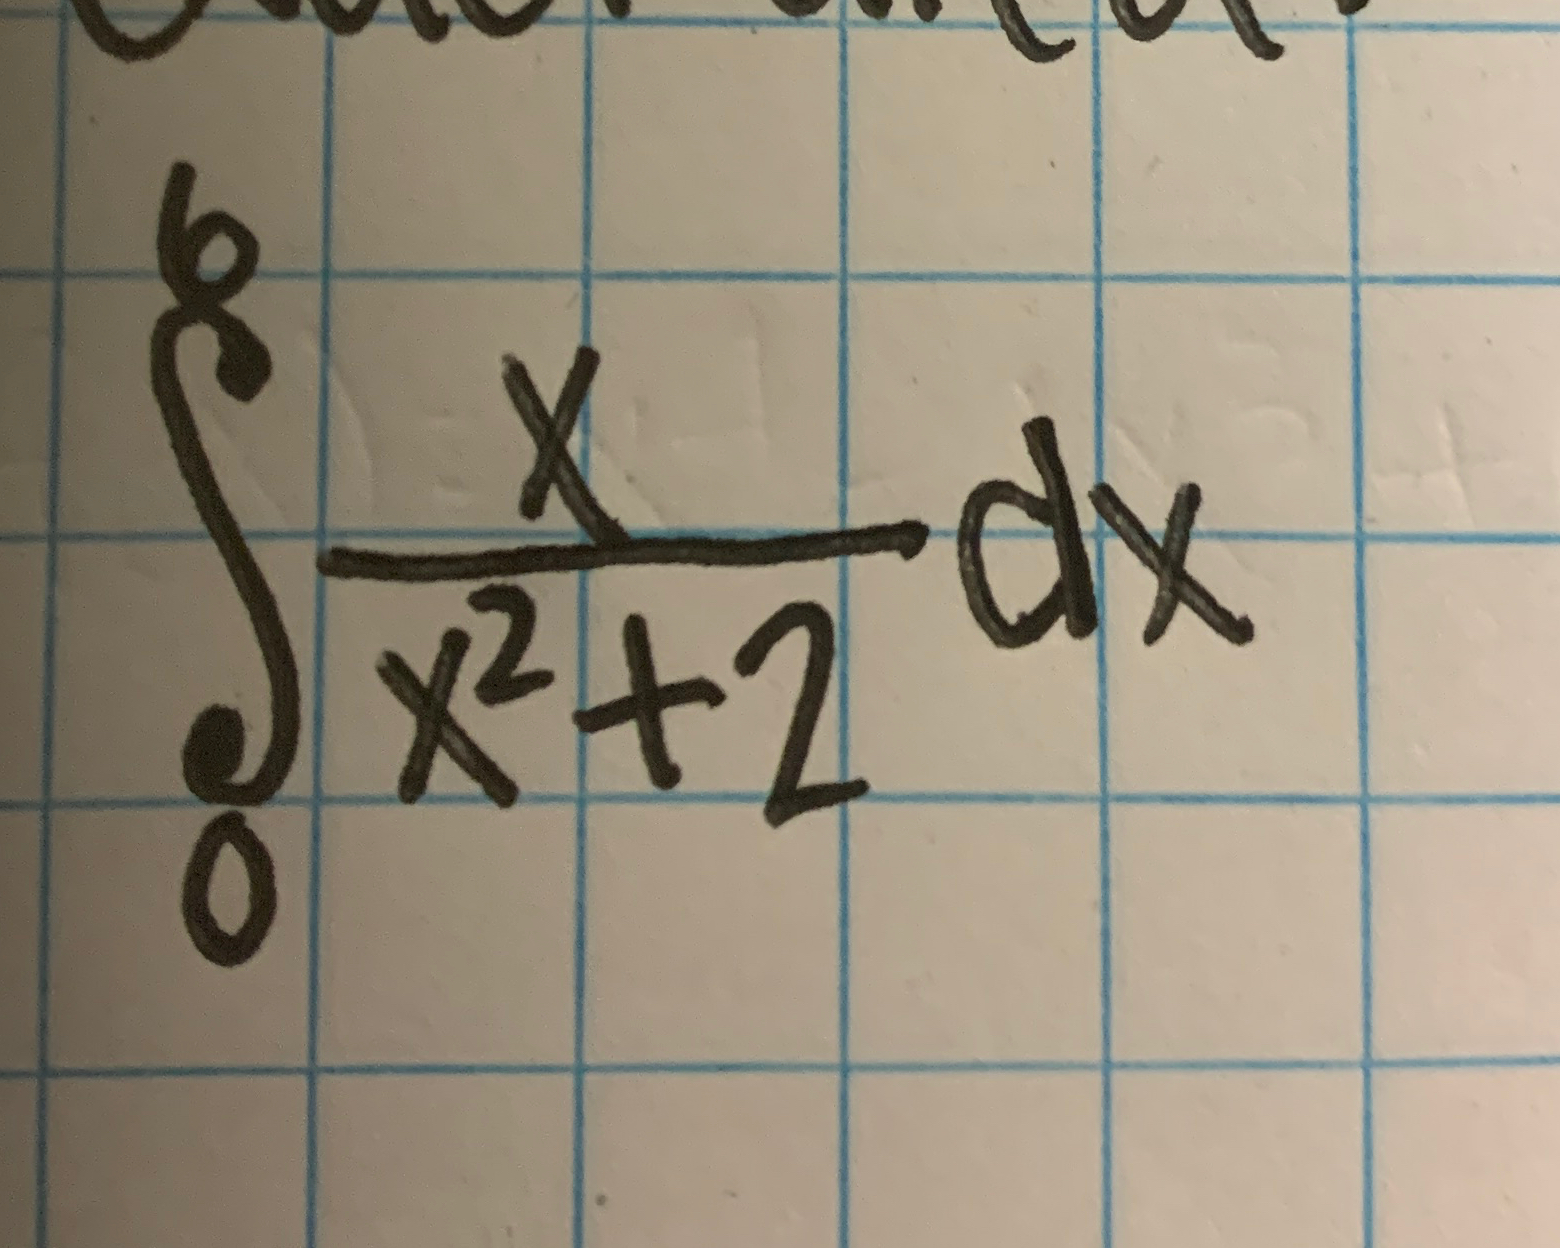 ∫₀⁶ x/(x²+2) dx